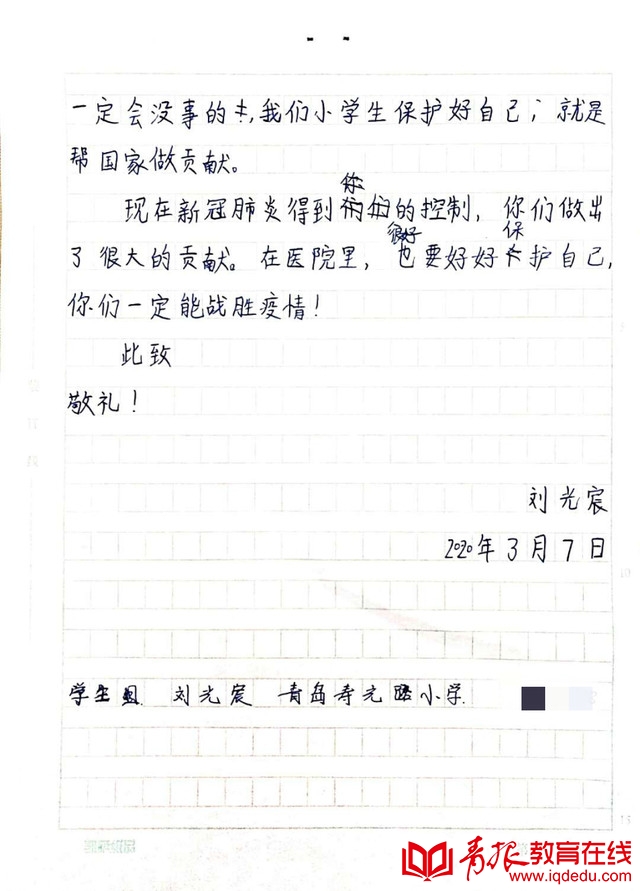 一定会没事的,我们小学生保护好自己,就是
帮国家做贡献。
现在新冠肺炎得到很好的控制,你们做出
了很大的贡献。在医院里,也要好好保护自己,
你们一定能战胜疫情!
此致
敬礼!
刘光宸
2020年3月7日
学生 刘光宸 青岛寿光路小学
青报教育在线
www.iqdedu.com